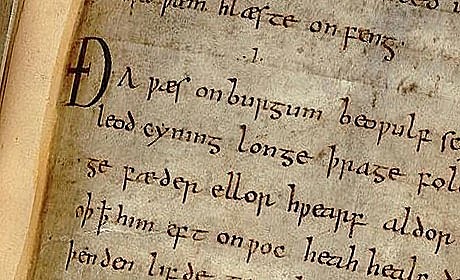 hlæste onfeng
.I.
ÐA ƿæs onburgum beoƿulf sc
leod cyning longe þrage fol
ge fæder ellor hƿearf aldor
oþꝥ him eft onƿoc heah heal
þenden lifde